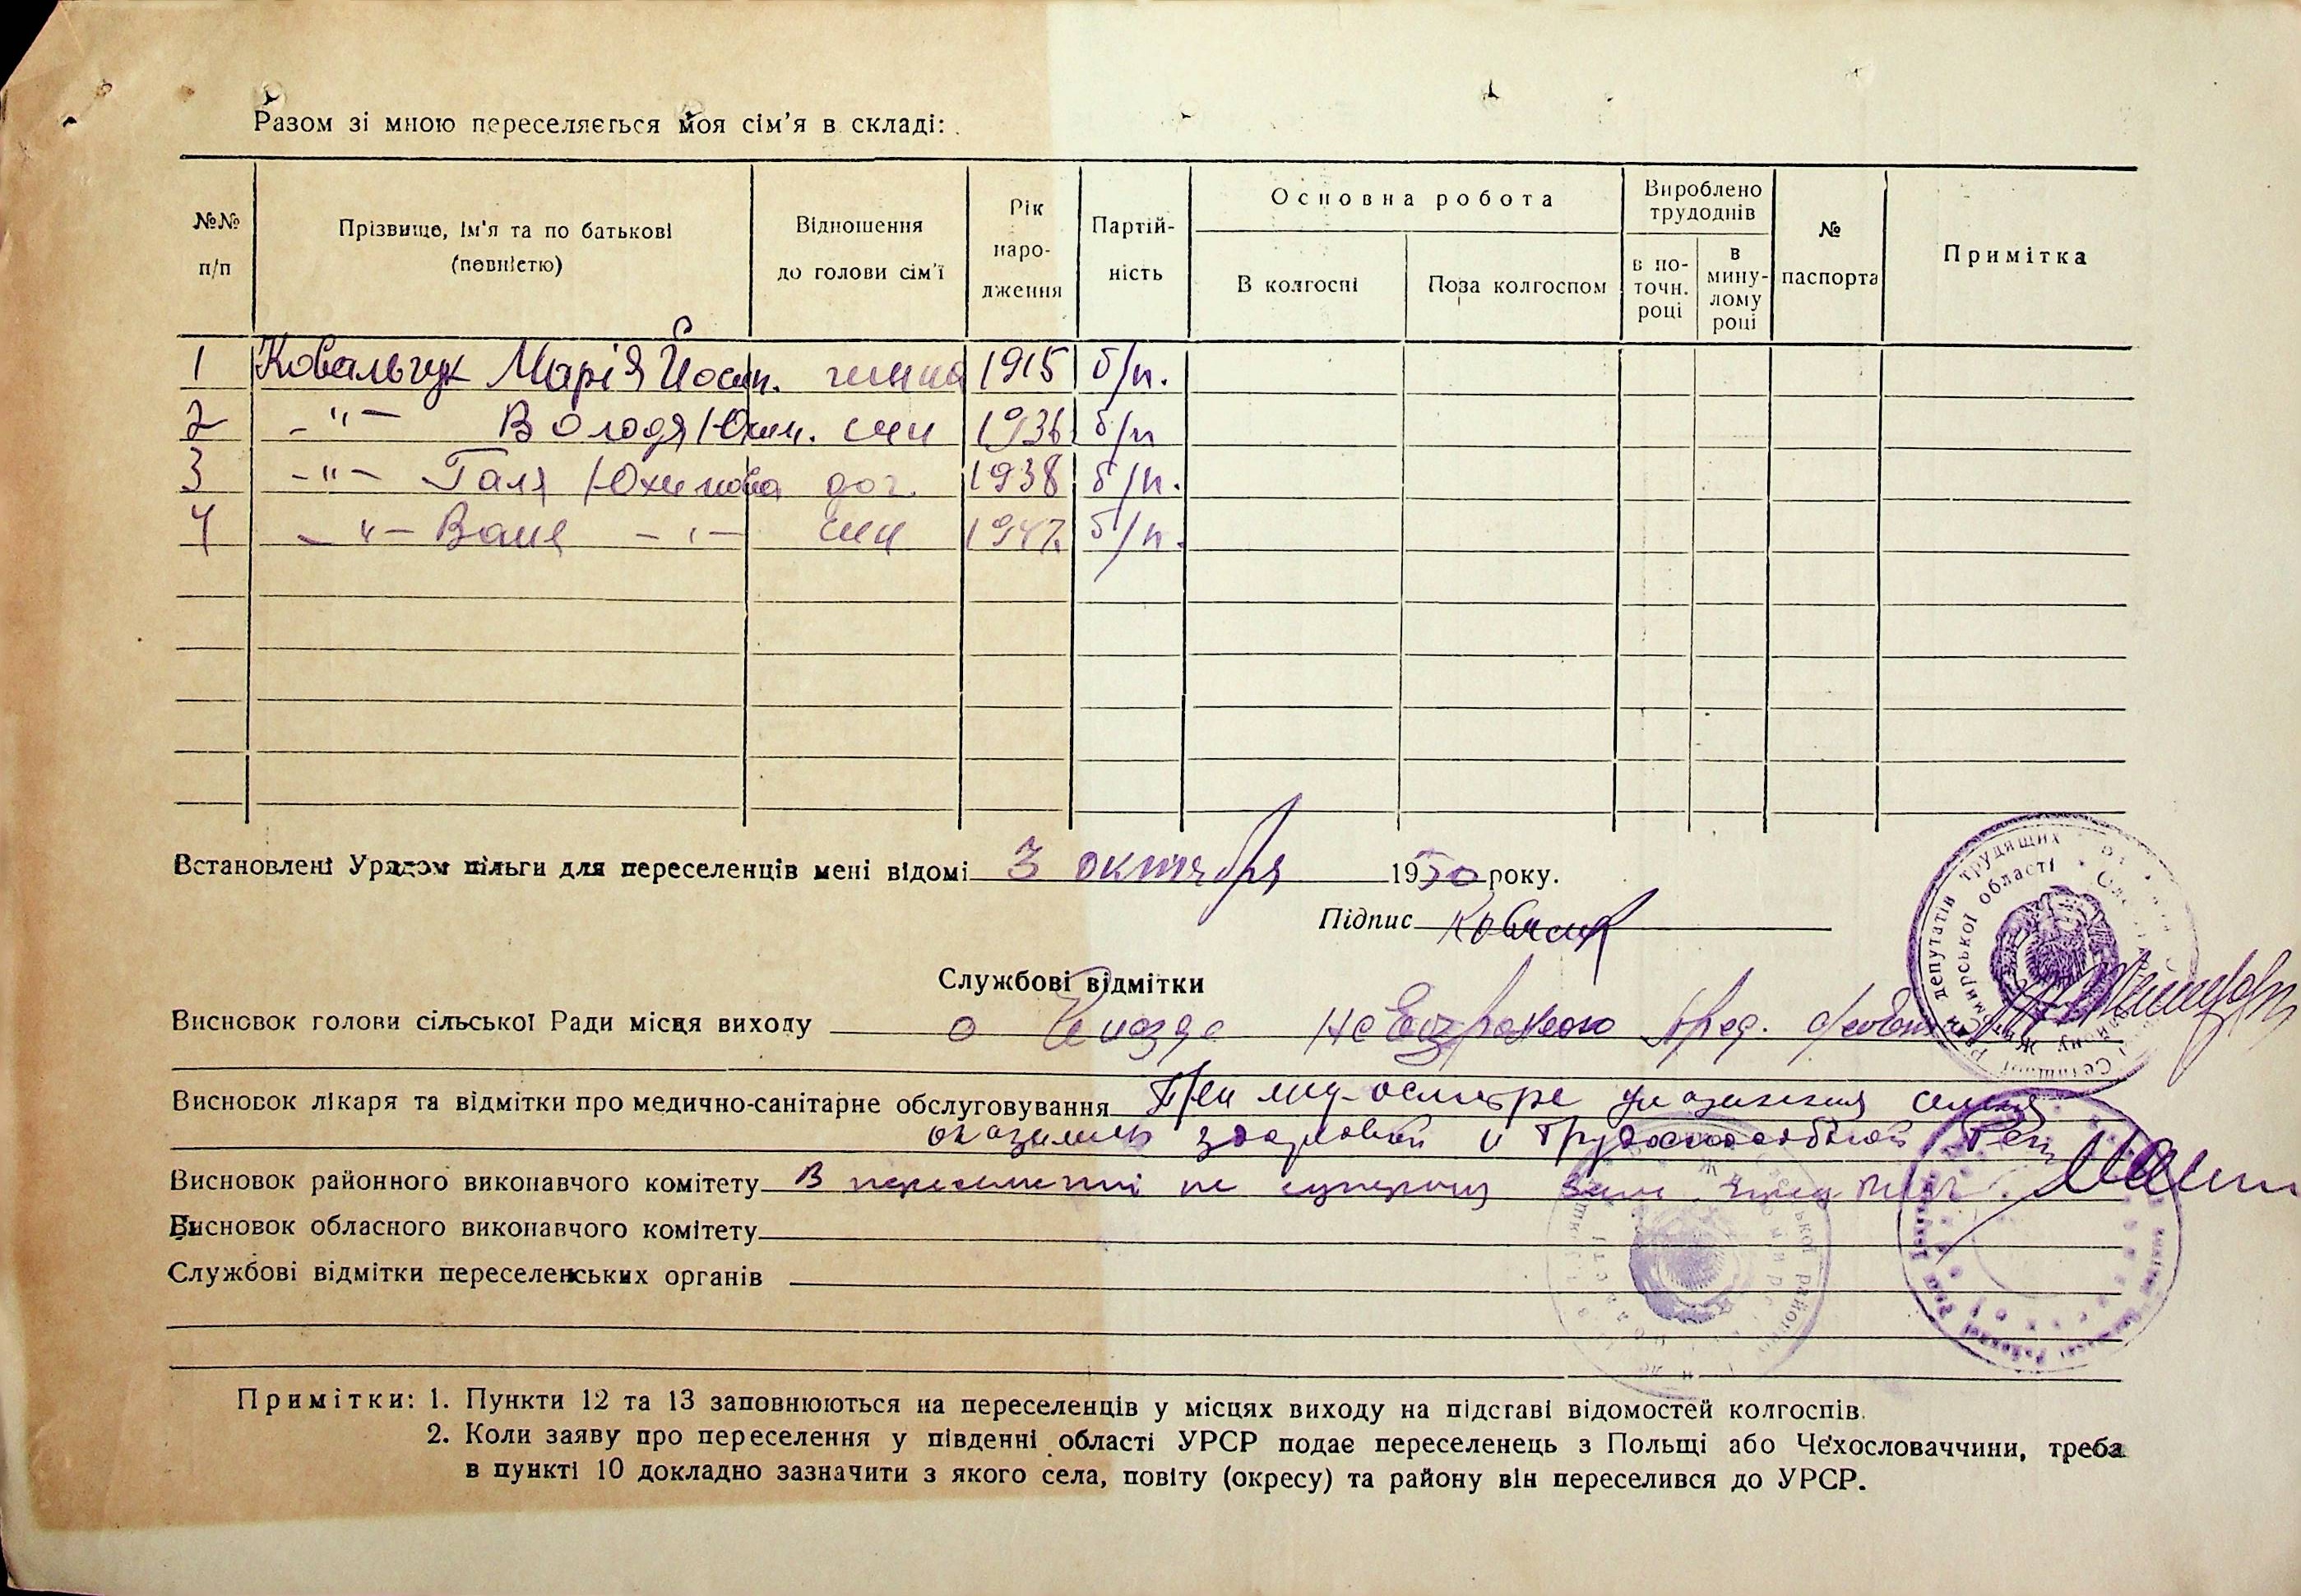 Разом зі мною переселяється моя сім’я в складі:
№№ п/п
Прізвище, ім’я та по батькові (повністю)
Відношення до голови сім’ї
Рік наро- дження
Партій- ність
Основна робота
В колгоспі
Поза колгоспом
Вироблено трудоднів
в по- точн. році
в мину- лому році
№ паспорта
Примітка
1 Ковальчук Марія Йосип. жинка 1915 б/п.
2 -"- Володя Юхим. син 1936 б/п
3 -"- Галя Юхимова доч. 1938 б/п.
4 -"- Ваня -"- син 1947 б/п.
Встановлені Урядом пільги для переселенців мені відомі 3 октября 1950 року.
Підпис
Службові відмітки
Висновок голови сільської Ради місця виходу
Висновок лікаря та відмітки про медично-санітарне обслуговування При мед-осмотре указанная семья
оказалась здоровой и трудоспособной
Висновок районного виконавчого комітету В переселенні не
Висновок обласного виконавчого комітету
Службові відмітки переселенських органів
Примітки: 1. Пункти 12 та 13 заповнюються на переселенців у місцях виходу на підставі відомостей колгоспів.
2. Коли заяву про переселення у південні області УРСР подає переселенець з Польщі або Чехословаччини, треба
в пункті 10 докладно зазначити з якого села, повіту (окресу) та району він переселився до УРСР.